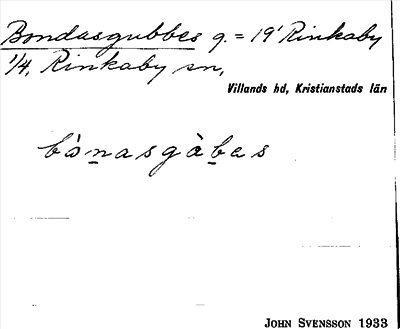 Bondasgubbes g. = 19' Rinkaby
1/4, Rinkaby sn,
Villands hd, Kristianstads län
bònasgàbes
JOHN SVENSSON 1933